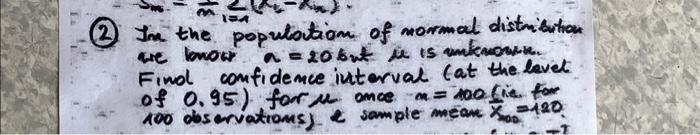 Sm = 1/m Σ i=1 (Xi - X̄m)².
② In the population of normal distribution
we know σ = 20 but μ is unknown.
Find confidence interval (at the level
of 0.95) for μ once n = 100 (i.e. for
100 observations) & sample mean X̄100 = 120